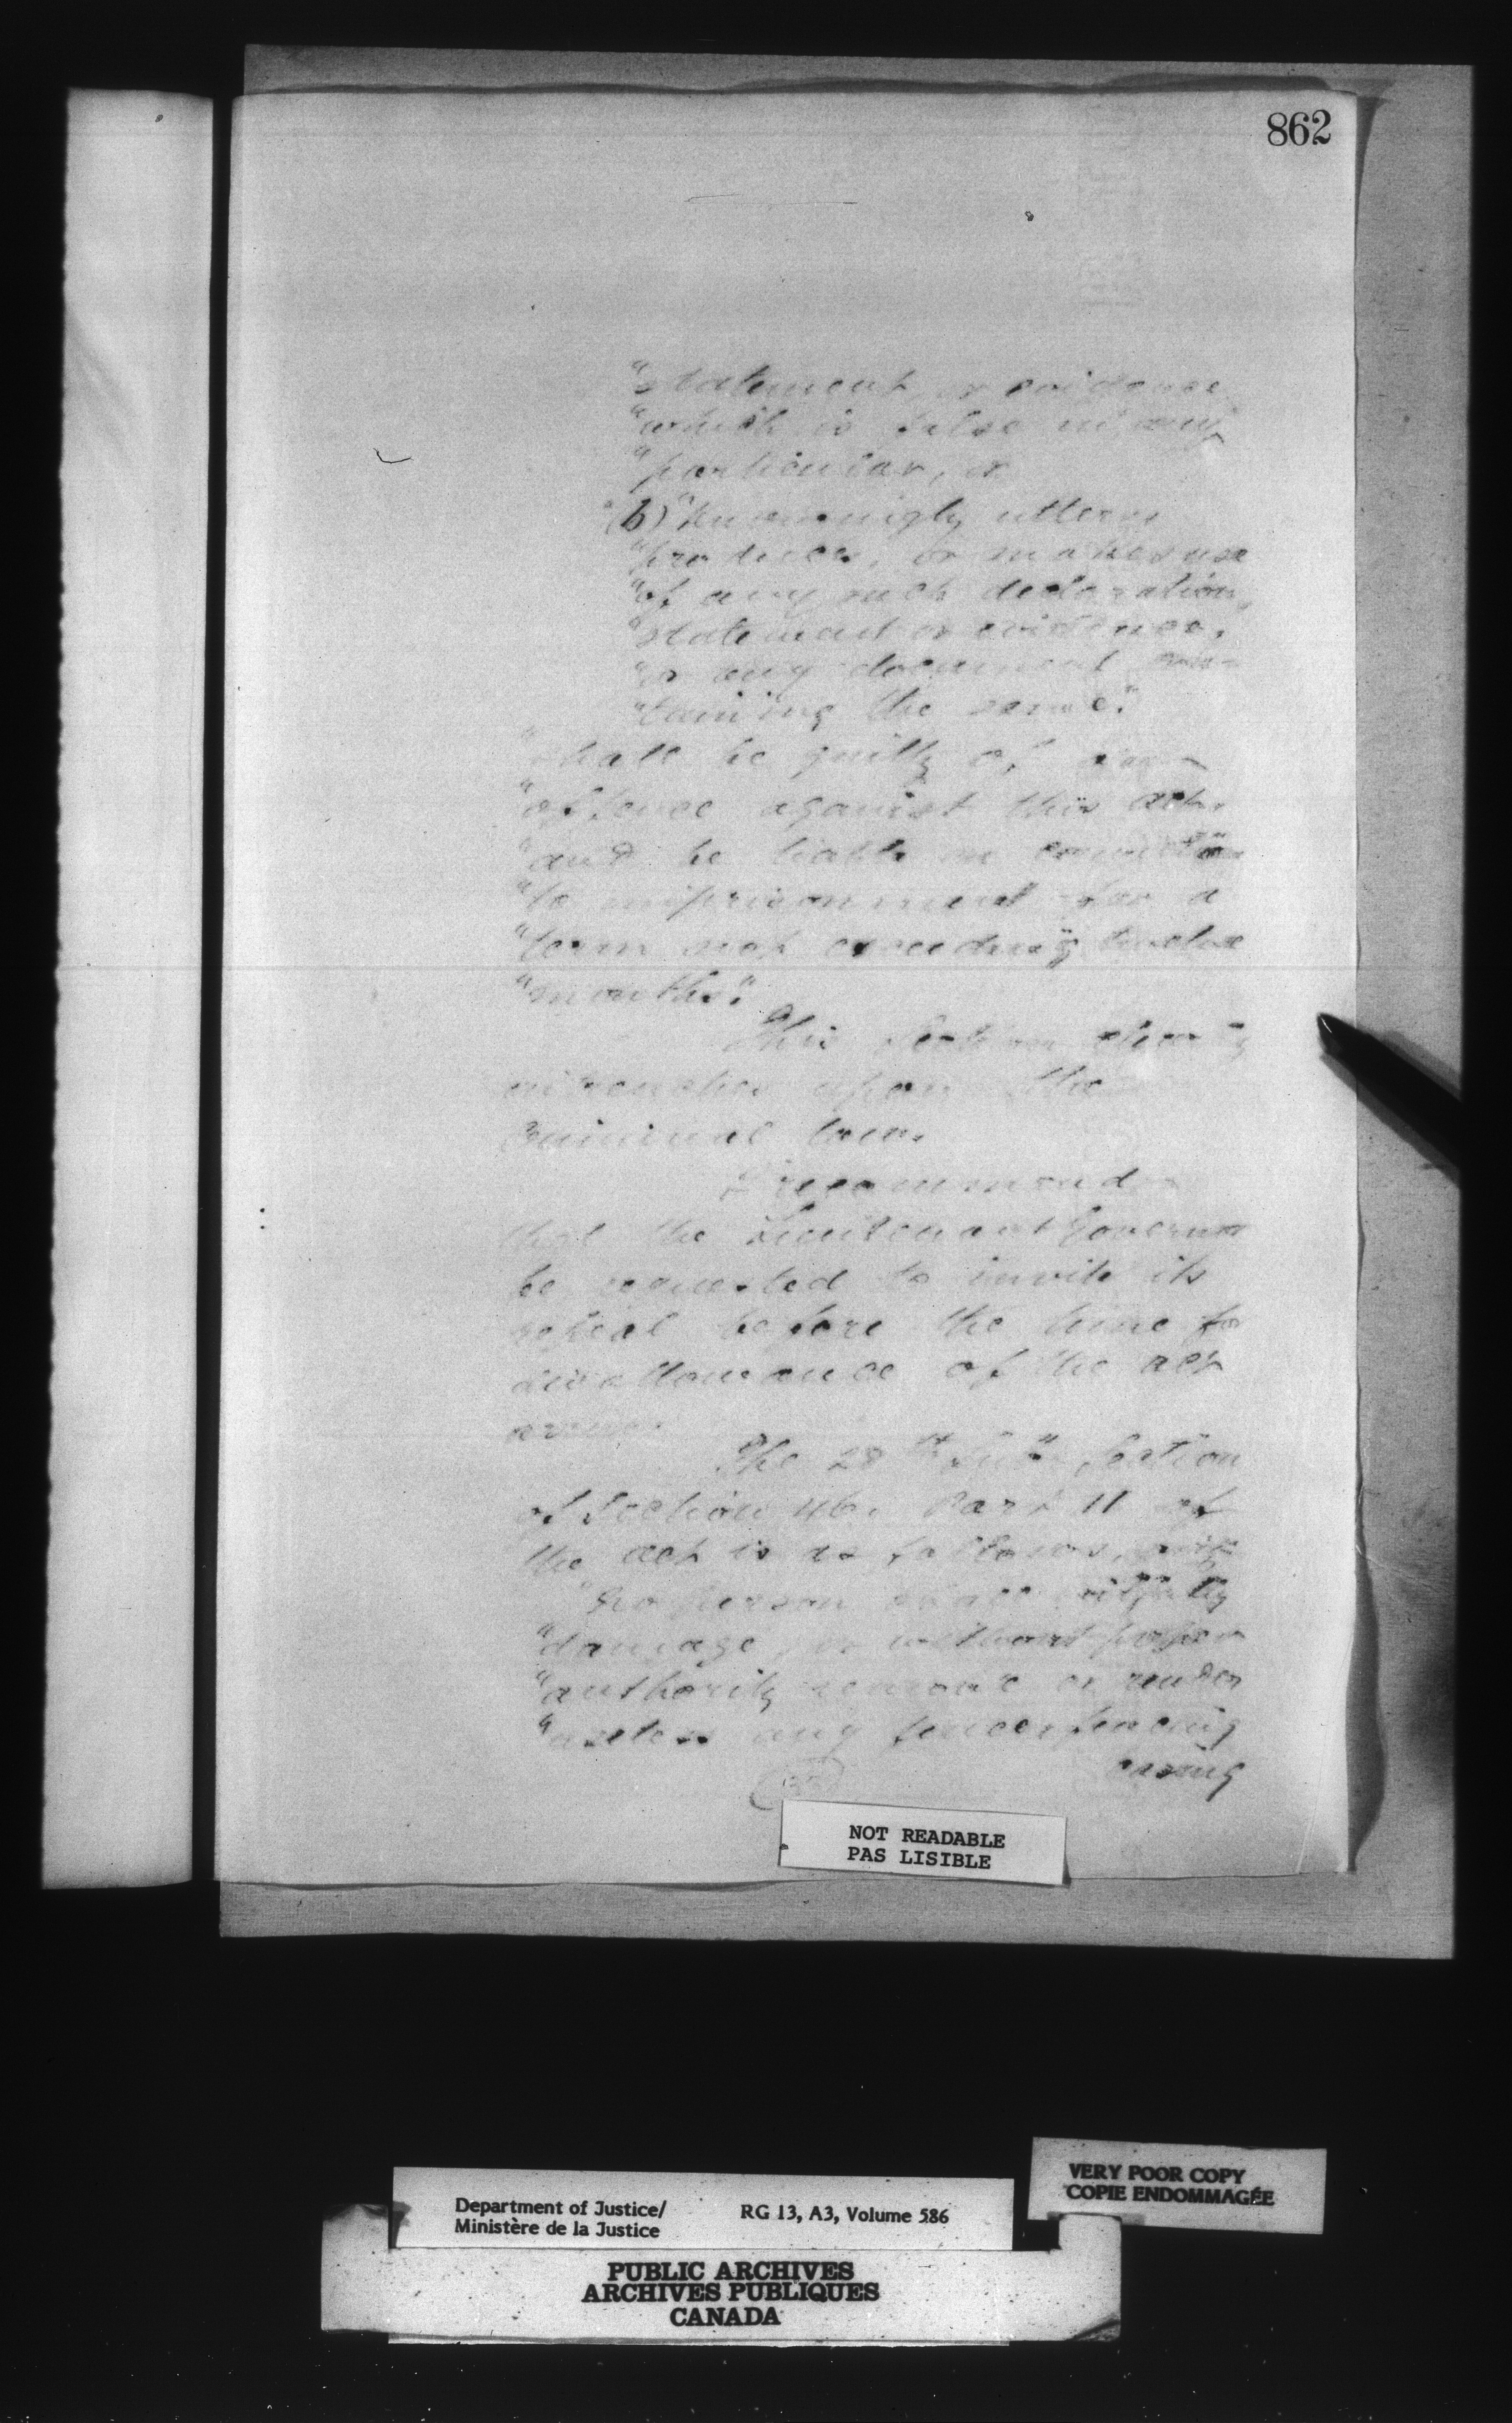 862
"statement or evidence
"which is false in any
"particular, or
"(b) "knowingly utters
"produces, or makes use
"of any such declaration,
"statement or evidence,
"or any document con-
"taining the same."
"shall be guilty of an
"offence against this act,
"and be liable on conviction
"to imprisonment for a
"term not exceeding twelve
"months."
This Section clearly
upon the
Criminal law.
I recommend
that the Lieutenant Governor
be requested to invite its
repeal before the time for
disallowance of the act
The 28th Sub Section
of Section 46, Part II of
the act is as follows,
"No person shall wilfully
"damage, or without proper
"authority remove or render
"useless any fence, fencing
casing
NOT READABLE
PAS LISIBLE
VERY POOR COPY
COPIE ENDOMMAGÉE
Department of Justice/ RG 13, A3, Volume 586
Ministère de la Justice
PUBLIC ARCHIVES
ARCHIVES PUBLIQUES
CANADA